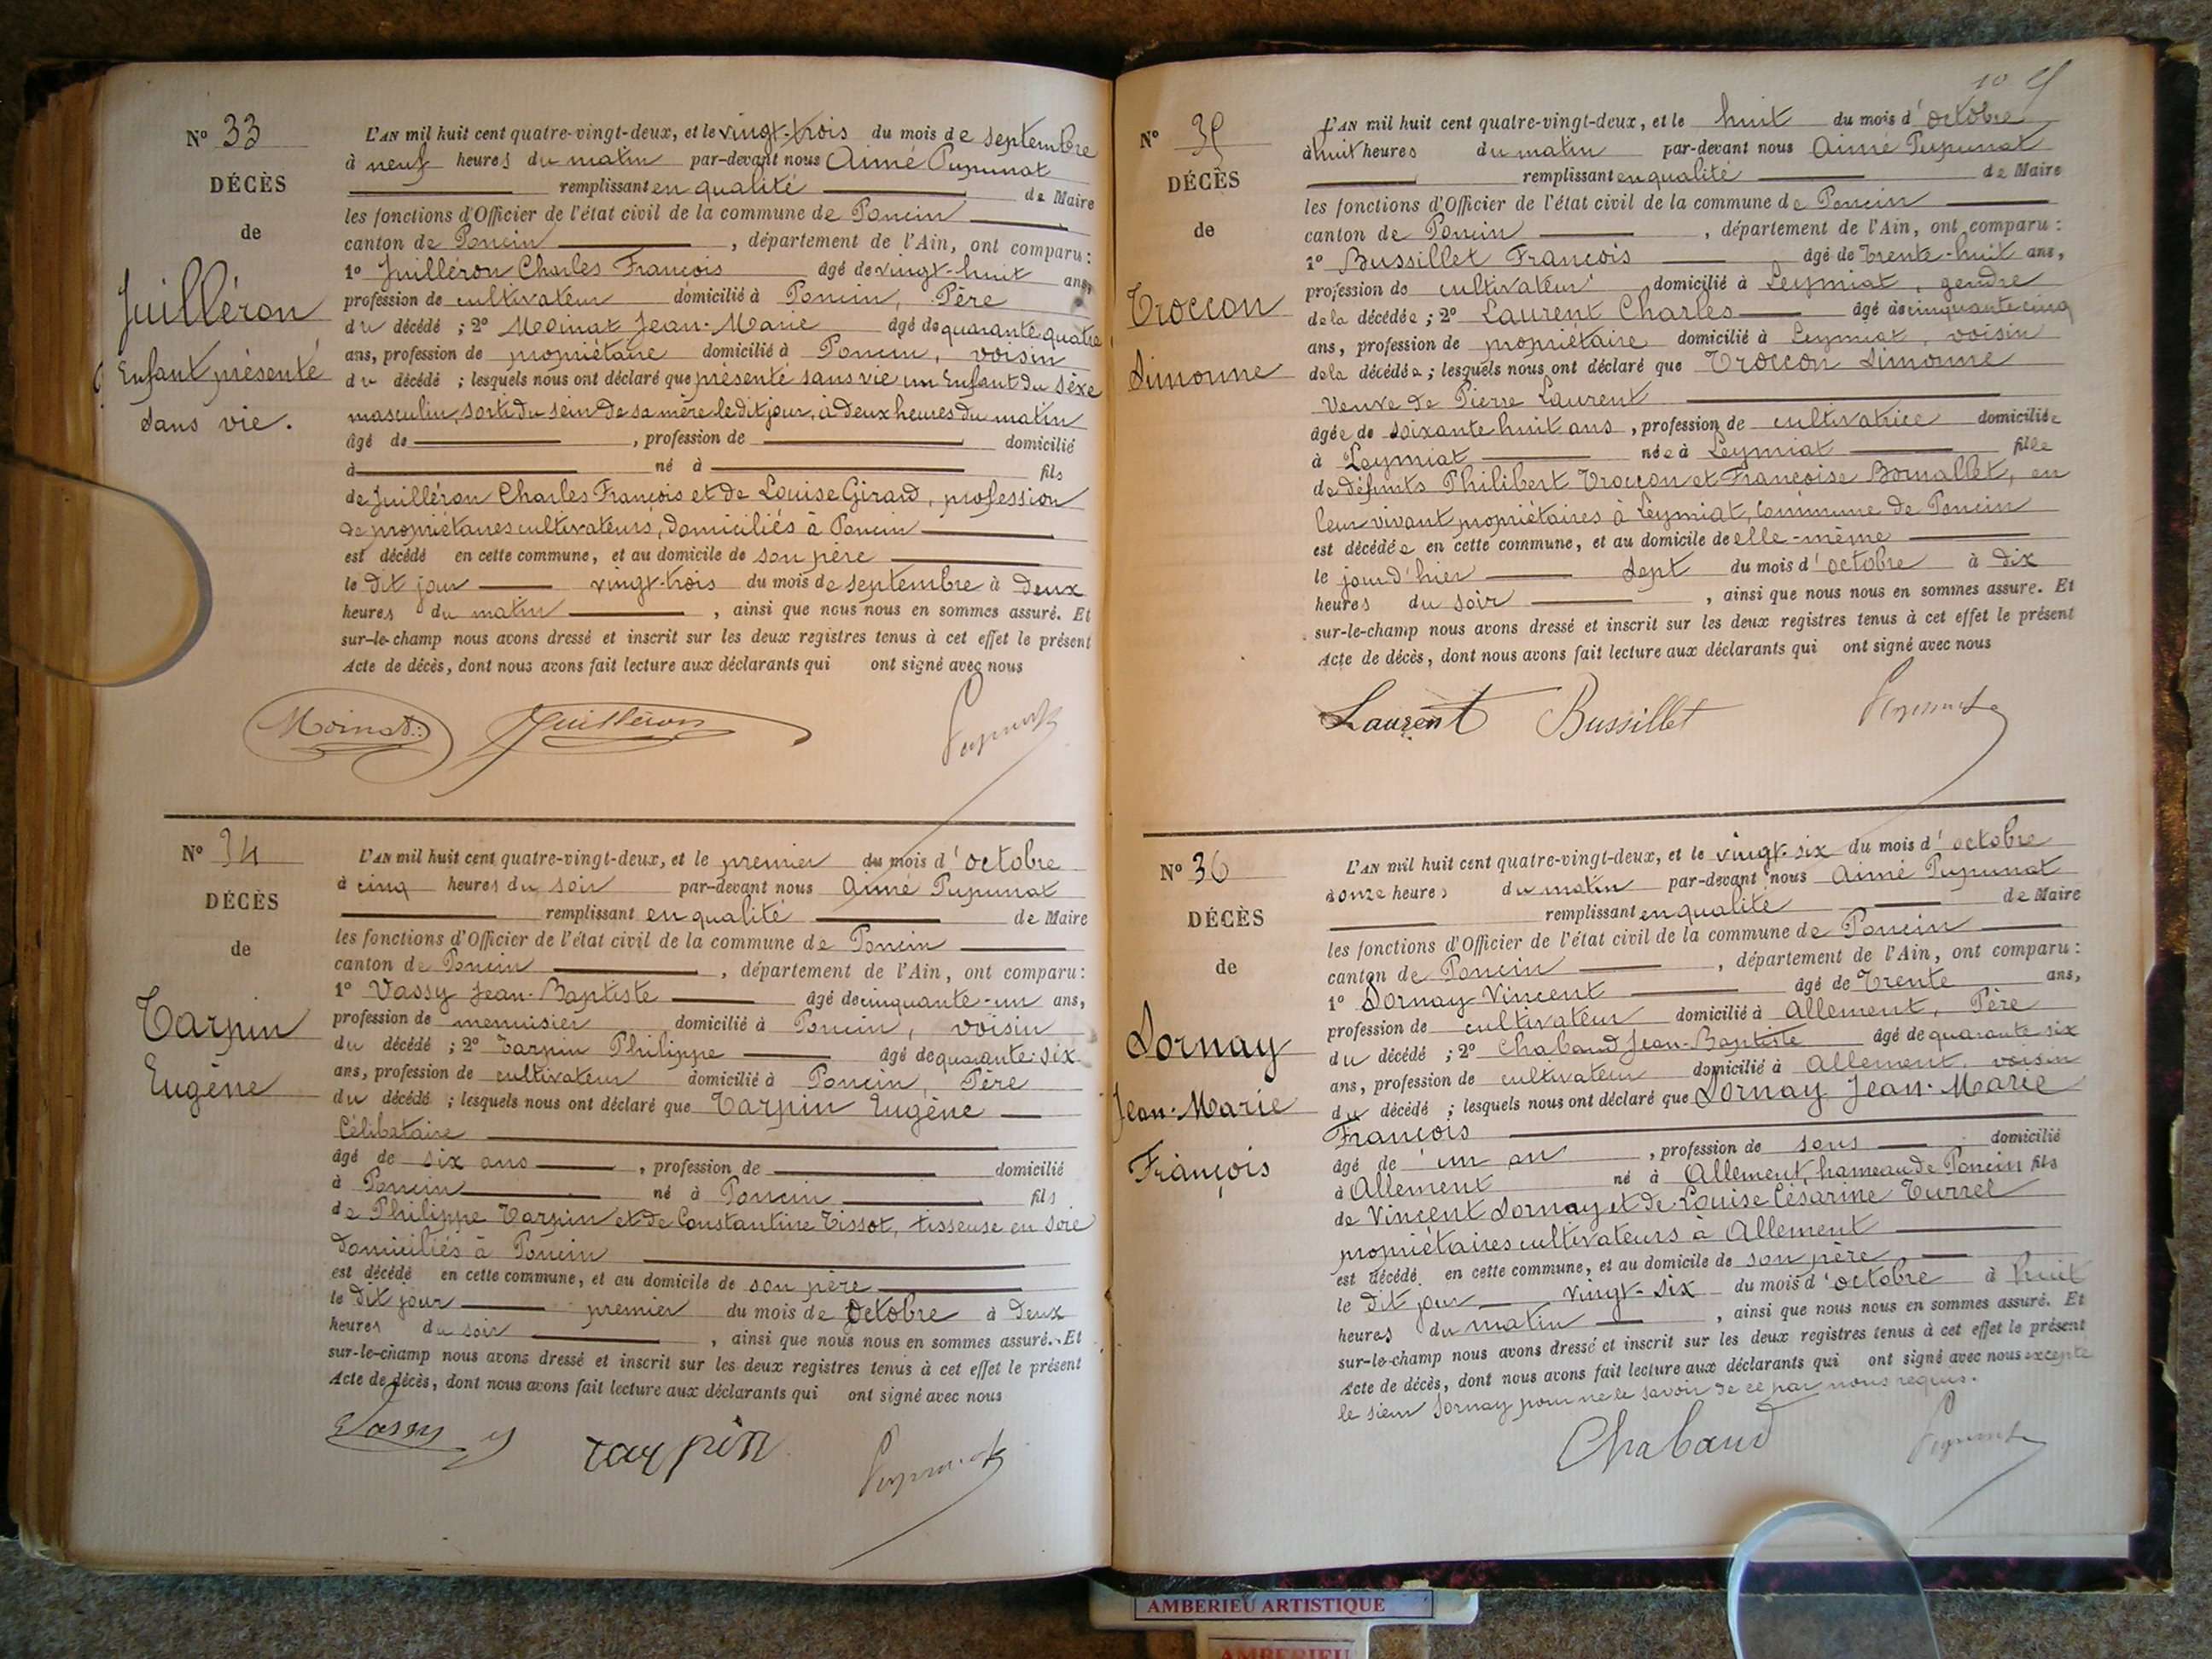 N° 33
DÉCÈS
de
Juilléron
Enfant présenté
sans vie.
L'AN mil huit cent quatre-vingt-deux, et le vingt-trois du mois de septembre
à neuf heures du matin par-devant nous Aimé Pupunat
remplissant en qualité de Maire
les fonctions d'Officier de l'état civil de la commune de Poncin
canton de Poncin, département de l'Ain, ont comparu :
1° Juilléron Charles François âgé de vingt-huit ans,
profession de cultivateur domicilié à Poncin, Père
du décédé ; 2° Moinat Jean-Marie âgé de quarante quatre
ans, profession de propriétaire domicilié à Poncin, voisin
du décédé ; lesquels nous ont déclaré que présenté sans vie un Enfant du sèxe
masculin, sorti du sein de sa mère le dit jour, à deux heures du matin
âgé de , profession de domicilié
à né à fils
de Juilléron Charles François et de Louise Girard, profession
de propriétaires cultivateurs, domiciliés à Poncin
est décédé en cette commune, et au domicile de son père
le dit jour vingt-trois du mois de septembre à deux
heures du matin , ainsi que nous nous en sommes assuré. Et
sur-le-champ nous avons dressé et inscrit sur les deux registres tenus à cet effet le présent
Acte de décès, dont nous avons fait lecture aux déclarants qui ont signé avec nous
Moinat Juilléron Pupunat
N° 34
DÉCÈS
de
Tarpin
Eugène
L'AN mil huit cent quatre-vingt-deux, et le premier du mois d'octobre
à cinq heures du soir par-devant nous Aimé Pupunat
remplissant en qualité de Maire
les fonctions d'Officier de l'état civil de la commune de Poncin
canton de Poncin , département de l'Ain, ont comparu :
1° Vassy Jean-Baptiste âgé de cinquante-un ans,
profession de menuisier domicilié à Poncin, voisin
du décédé ; 2° Tarpin Philippe âgé de quarante-six
ans, profession de cultivateur domicilié à Poncin, Père
du décédé ; lesquels nous ont déclaré que Tarpin Eugène
Célibataire
âgé de six ans , profession de domicilié
à Poncin né à Poncin fils
de Philippe Tarpin et de Constantine Tissot, tisseuse en soie
domiciliés à Poncin
est décédé en cette commune, et au domicile de son père
le dit jour premier du mois de octobre à deux
heures du soir , ainsi que nous nous en sommes assuré. Et
sur-le-champ nous avons dressé et inscrit sur les deux registres tenus à cet effet le présent
Acte de décès, dont nous avons fait lecture aux déclarants qui ont signé avec nous
Vassy tarpin Pupunat
10
N° 35
DÉCÈS
de
Troccon
Simonne
L'AN mil huit cent quatre-vingt-deux, et le huit du mois d'octobre
à huit heures du matin par-devant nous Aimé Pupunat
remplissant en qualité de Maire
les fonctions d'Officier de l'état civil de la commune de Poncin
canton de Poncin , département de l'Ain, ont comparu :
1° Bussillet François âgé de trente-huit ans,
profession de cultivateur domicilié à Leymiat, gendre
de la décédée ; 2° Laurent Charles âgé de cinquante cinq
ans, profession de propriétaire domicilié à Leymiat, voisin
de la décédée ; lesquels nous ont déclaré que Troccon Simonne
Veuve de Pierre Laurent
âgée de soixante huit ans , profession de cultivatrice domiciliée
à Leymiat née à Leymiat fille
de défunts Philibert Troccon et Françoise Bornallet, en
leur vivant propriétaires à Leymiat, commune de Poncin
est décédée en cette commune, et au domicile de elle-même
le jour d'hier sept du mois d'octobre à dix
heures du soir , ainsi que nous nous en sommes assuré. Et
sur-le-champ nous avons dressé et inscrit sur les deux registres tenus à cet effet le présent
Acte de décès, dont nous avons fait lecture aux déclarants qui ont signé avec nous
Laurent Bussillet Pupunat
N° 36
DÉCÈS
de
Dornay
Jean-Marie
François
L'AN mil huit cent quatre-vingt-deux, et le vingt-six du mois d'octobre
à onze heures du matin par-devant nous Aimé Pupunat
remplissant en qualité de Maire
les fonctions d'Officier de l'état civil de la commune de Poncin
canton de Poncin , département de l'Ain, ont comparu :
1° Dornay Vincent âgé de Trente ans,
profession de cultivateur domicilié à Allement, Père
du décédé ; 2° Chabaud Jean-Baptiste âgé de quarante six
ans, profession de cultivateur domicilié à Allement, voisin
du décédé ; lesquels nous ont déclaré que Dornay Jean-Marie
François
âgé de un an , profession de sans domicilié
à Allement né à Allement, hameau de Poncin fils
de Vincent Dornay et de Louise Césarine Turrel
propriétaires cultivateurs à Allement
est décédé en cette commune, et au domicile de son père
le dit jour vingt-six du mois d'octobre à huit
heures du matin , ainsi que nous nous en sommes assuré. Et
sur-le-champ nous avons dressé et inscrit sur les deux registres tenus à cet effet le présent
Acte de décès, dont nous avons fait lecture aux déclarants qui ont signé avec nous excepté
le sieur Dornay pour ne le savoir de ce par nous requis.
Chabaud Pupunat
AMBERIEU ARTISTIQUE
AMBERIEU